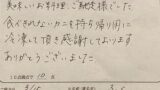 美味しいお料理、ご馳走様でした
食べきれないカニを持ち帰り用に
冷凍して頂き感謝しております
ありがとうございました
10
3/15